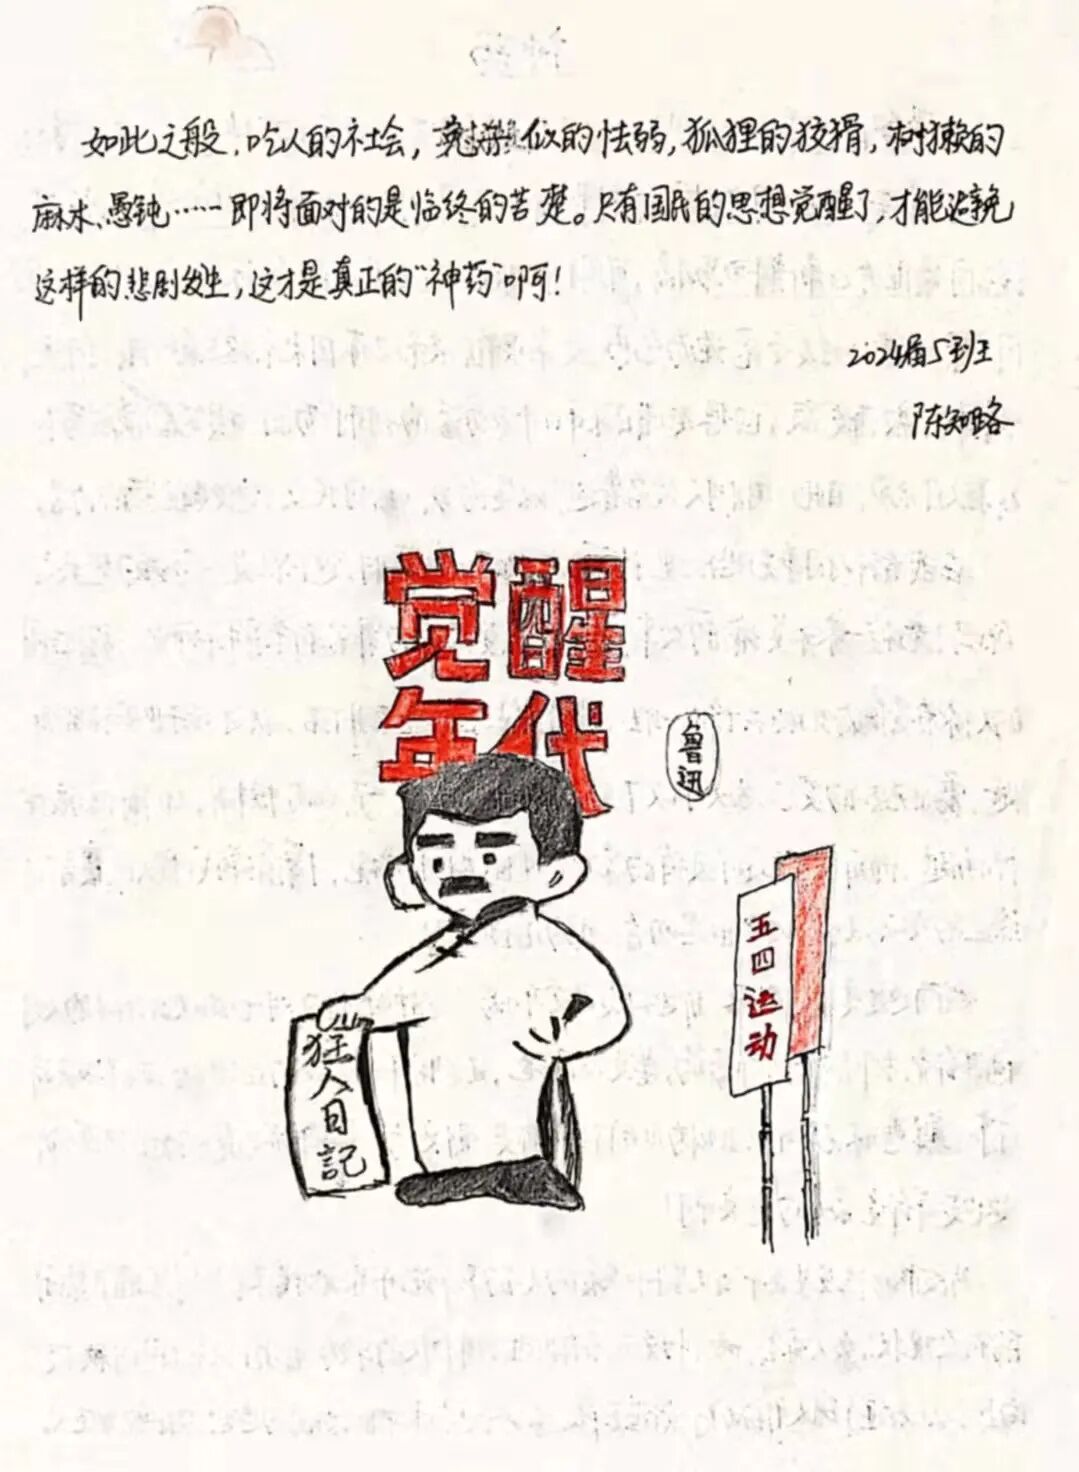 如此之般，吃人的社会，似的怯弱，狐狸的狡猾，树獭的
麻木、愚钝……即将面对的是临终的苦楚。只有国民的思想觉醒了，才能避免
这样的悲剧发生，这才是真正的“神药”啊！
2024届5班
陈知路
觉醒
年代
鲁迅
五四运动
狂人日記